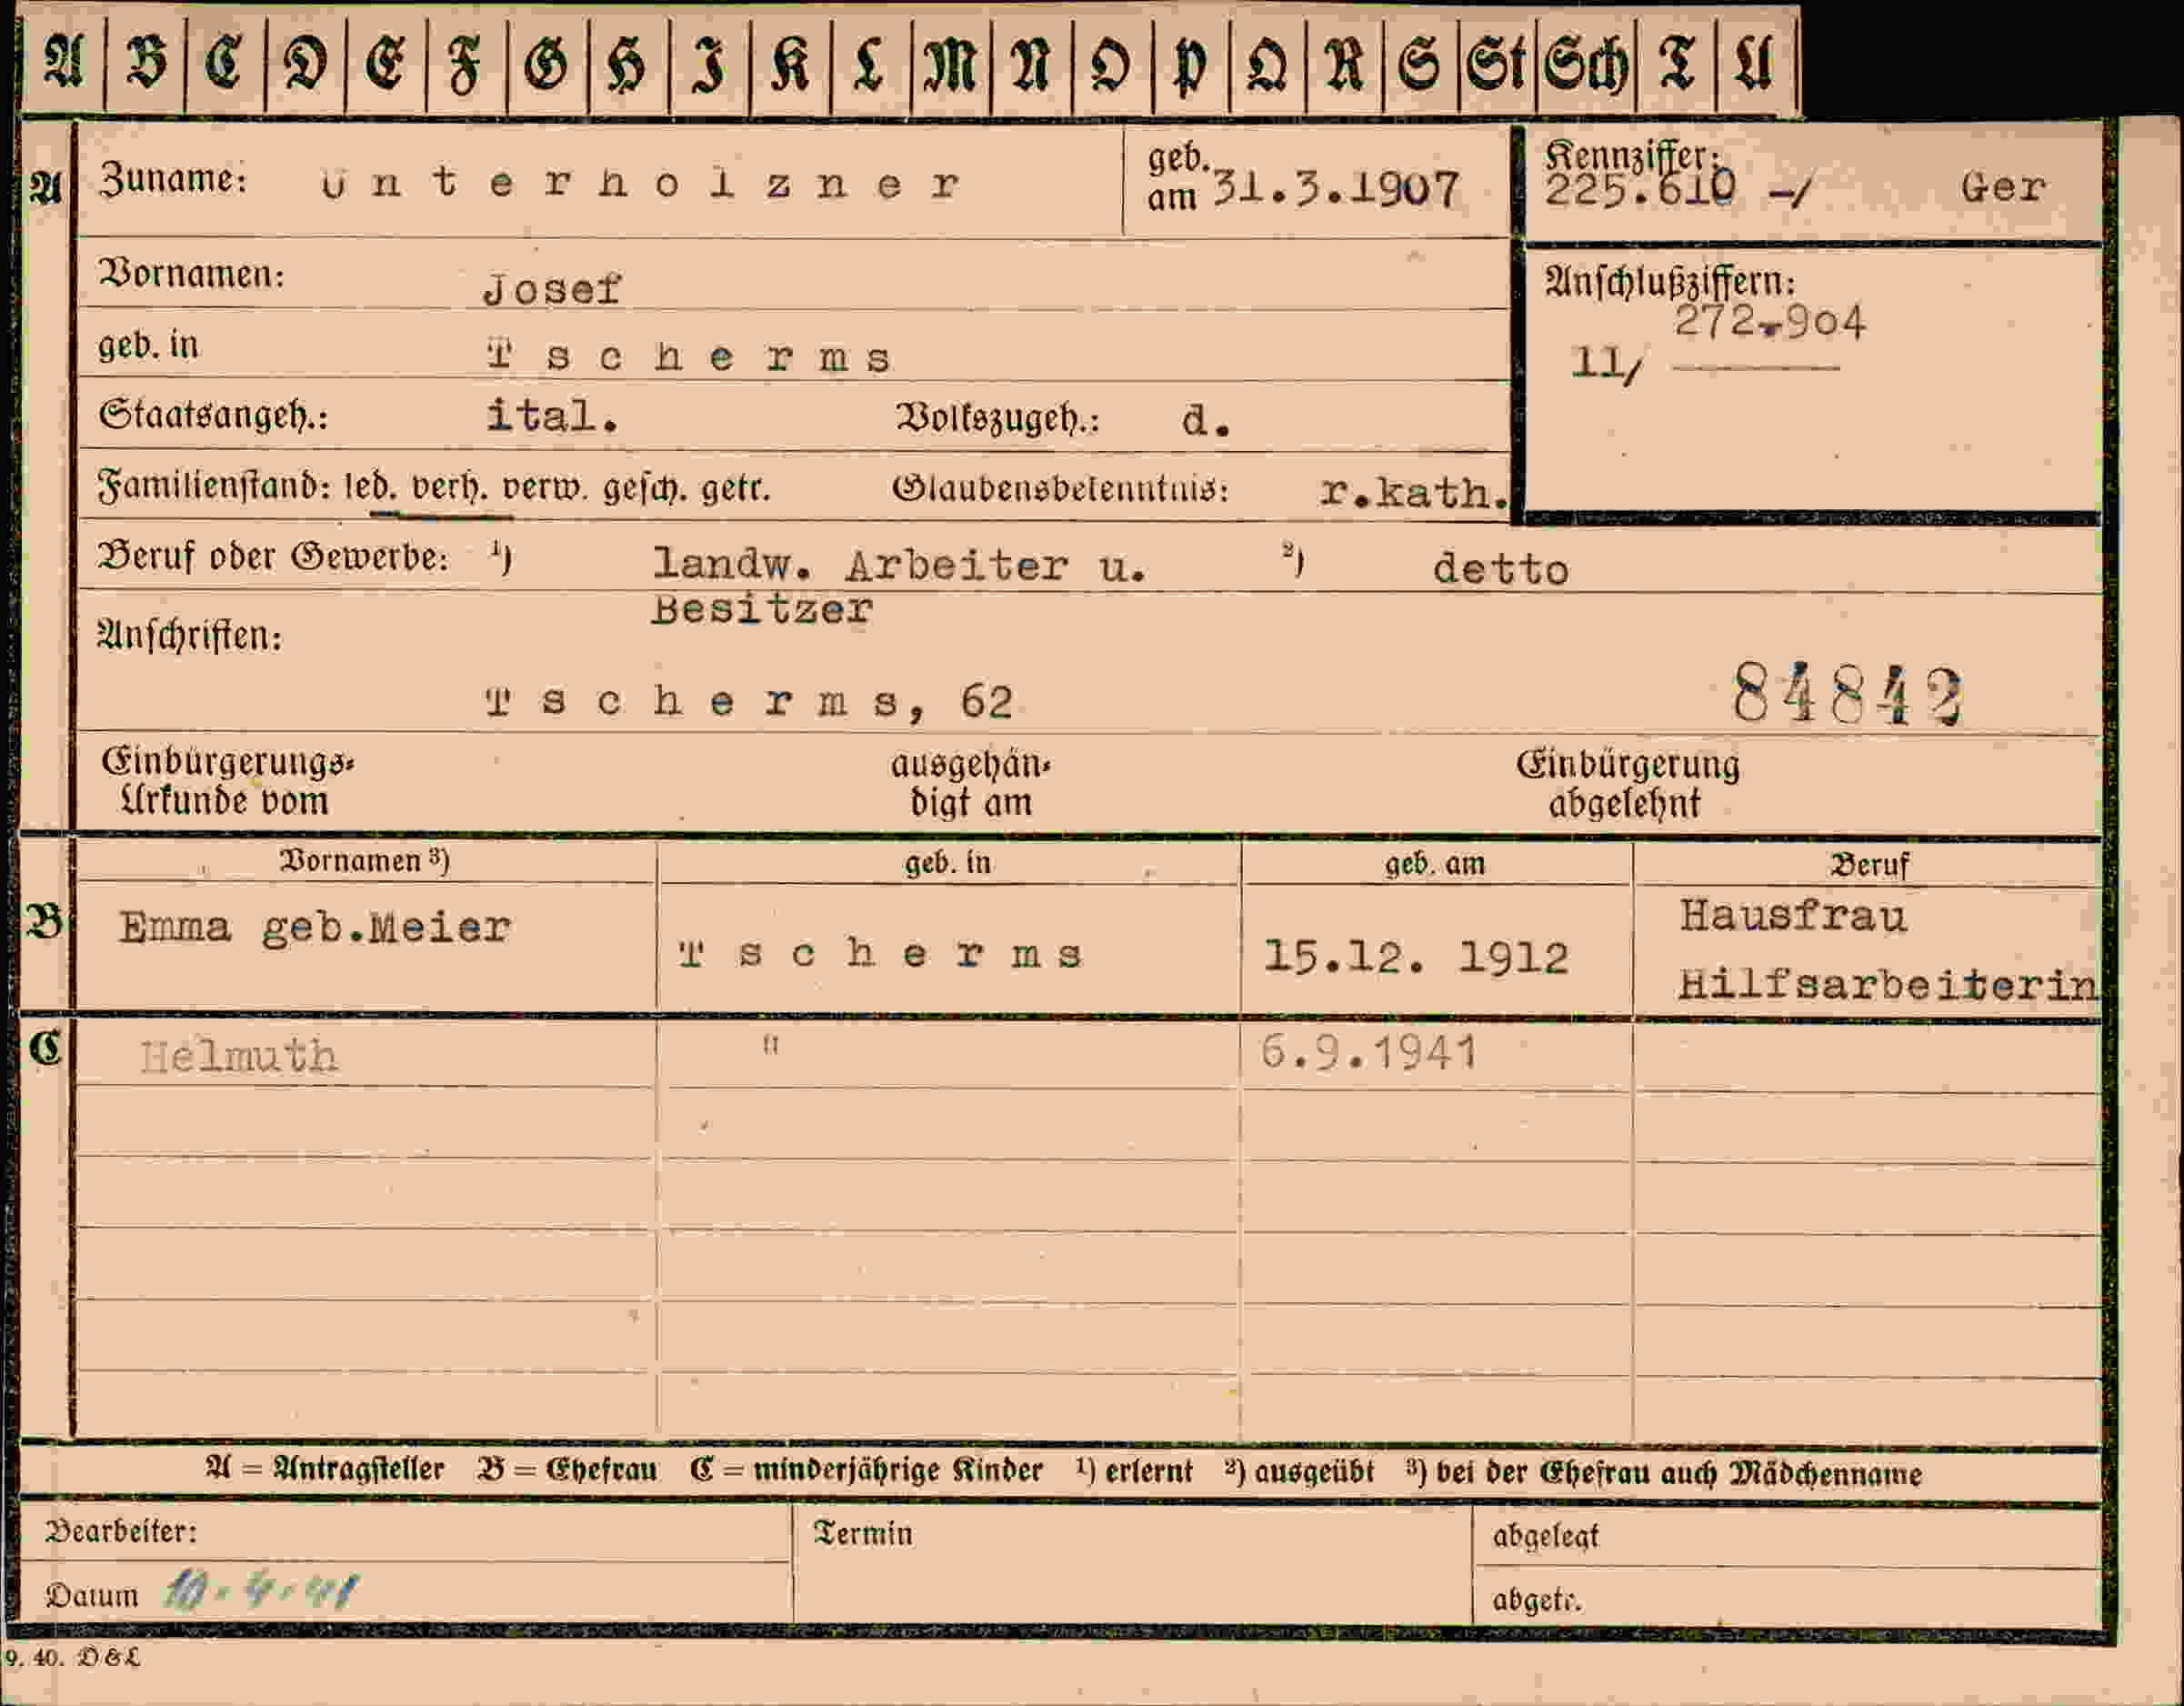 A B C D E F G H I K L M N O P Q R S St Sch T U
A Zuname: U n t e r h o l z n e r geb. am 31.3.1907 Kennziffer: 225.610 -/ Ger
Vornamen: Josef Anschlußziffern:
272.904
geb. in T s c h e r m s 11/
Staatsangeh.: ital. Volkszugeh.: d.
Familienstand: led. verh. verw. gesch. getr. Glaubensbekenntnis: r.kath.
Beruf oder Gewerbe: ¹) landw. Arbeiter u. ²) detto
Besitzer
Anschriften:
T s c h e r m s, 62 84842
Einbürgerungs- ausgehän- Einbürgerung
Urkunde vom digt am abgelehnt
Vornamen ³) geb. in geb. am Beruf
B Emma geb.Meier T s c h e r m s 15.12. 1912 Hausfrau
Hilfsarbeiterin
C Helmuth " 6.9.1941
A = Antragsteller B = Ehefrau C = minderjährige Kinder ¹) erlernt ²) ausgeübt ³) bei der Ehefrau auch Mädchenname
Bearbeiter: Termin abgelegt
Datum 10.4.41 abgetr.
9. 40. D & L